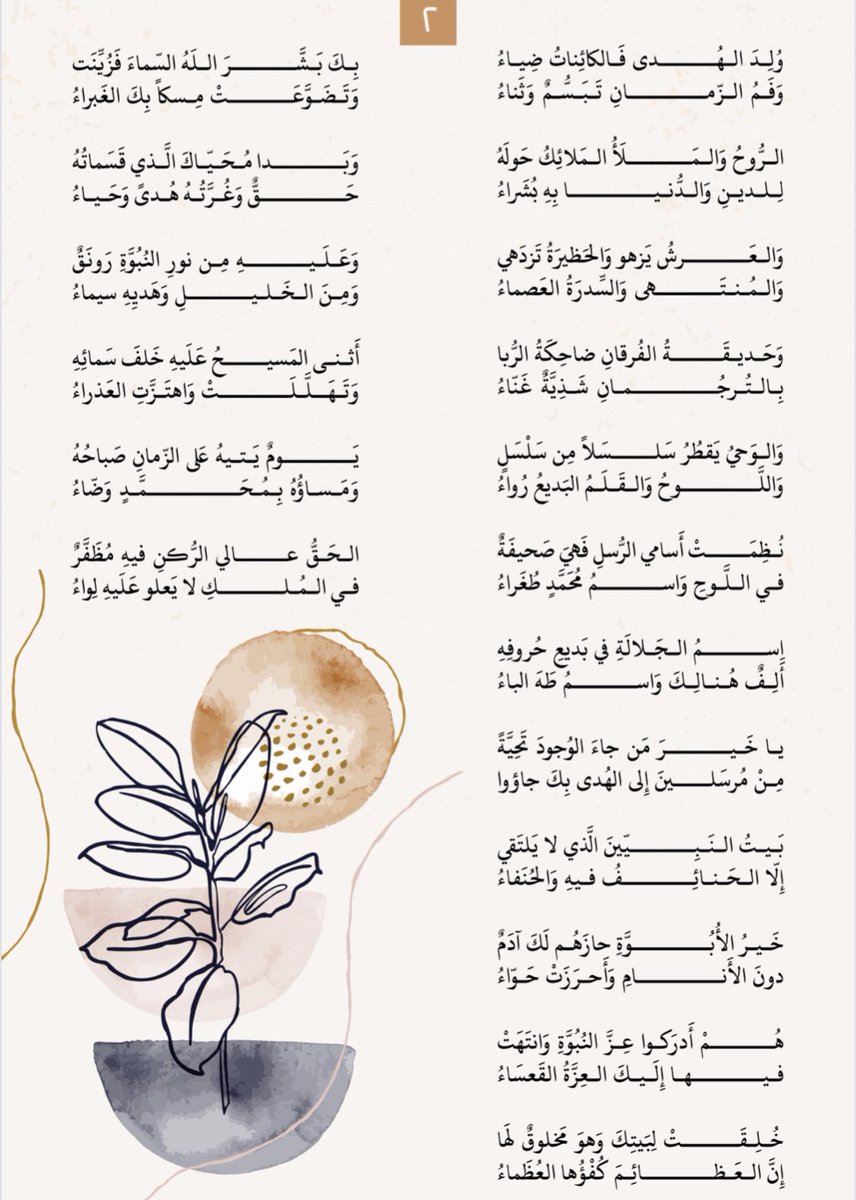 ٢
وُلِدَ الهُدى فَالكائِناتُ ضِياءُ
وَفَمُ الزَّمانِ تَبَسُّمٌ وَثَناءُ
الرُّوحُ وَالمَلَأُ المَلائِكُ حَولَهُ
لِلدينِ وَالدُّنيا بِهِ بُشَراءُ
وَالعَرشُ يَزهو وَالحَظيرَةُ تَزدَهي
وَالمُنتَهى وَالسِّدرَةُ العَصماءُ
وَحَديقَةُ الفُرقانِ ضاحِكَةُ الرُّبا
بِالتُرجُمانِ شَذِيَّةٌ غَنّاءُ
وَالوَحيُ يَقطُرُ سَلسَلاً مِن سَلْسَلٍ
وَاللَّوحُ وَالقَلَمُ البَديعُ رُواءُ
نُظِمَتْ أَسامي الرُّسلِ فَهيَ صَحيفَةٌ
في اللَّوحِ وَاسمُ مُحَمَّدٍ طُغَراءُ
اِسمُ الجَلالَةِ في بَديعِ حُروفِهِ
أَلِفٌ هُنالِكَ وَاسمُ طَهَ الباءُ
يا خَيرَ مَن جاءَ الوُجودَ تَحِيَّةً
مِنْ مُرسَلينَ إِلى الهُدى بِكَ جاؤوا
بَيتُ النَبِيّينَ الَّذي لا يَلتَقي
إِلّا الحَنائِفُ فيهِ وَالحُنَفاءُ
خَيرُ الأُبُوَّةِ حازَهُم لَكَ آدَمٌ
دونَ الأَنامِ وَأَحرَزَتْ حَوّاءُ
هُمْ أَدرَكوا عِزَّ النُبُوَّةِ وَانتَهَتْ
فيها إِلَيكَ العِزَّةُ القَعسَاءُ
خُلِقَتْ لِبَيتِكَ وَهوَ مَخلوقٌ لَها
إِنَّ العَظائِمَ كُفْؤُها العُظَماءُ
بِكَ بَشَّرَ اللَهُ السّماءَ فَزُيِّنَت
وَتَضَوَّعَتْ مِسكاً بِكَ الغَبراءُ
وَبَدا مُحَيّاكَ الَّذي قَسَماتُهُ
حَقٌّ وَغُرَّتُهُ هُدىً وَحَياءُ
وَعَلَيهِ مِن نورِ النُبُوَّةِ رَونَقٌ
وَمِنَ الخَليلِ وَهَديِهِ سيماءُ
أَثنى المَسيحُ عَلَيهِ خَلفَ سَمائِهِ
وَتَهَلَّلَتْ وَاهتَزَّتِ العَذراءُ
يَومٌ يَتيهُ عَلى الزّمانِ صَباحُهُ
وَمَساؤُهُ بِمُحَمَّدٍ وَضّاءُ
الحَقُّ عالي الرُّكنِ فيهِ مُظَفَّرٌ
في المُلكِ لا يَعلو عَلَيهِ لِواءُ